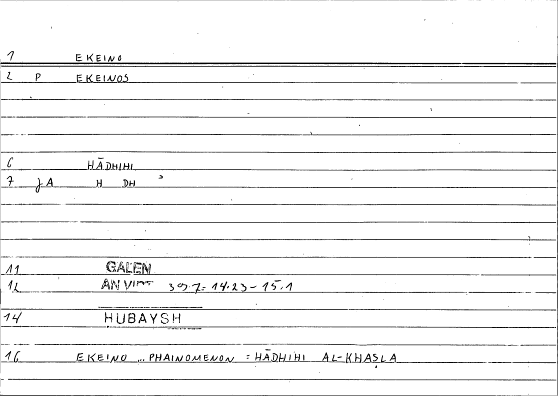 1 EKEINO
2 P EKEINOS
6 HĀDHIHI
7 JA H DH ʾ
11 GALEN
12 AN VIRT 14.23-15.1
14 HUBAYSH
16 EKEINO ... PHAINOMENON : HĀDHIHI AL-KHASLA